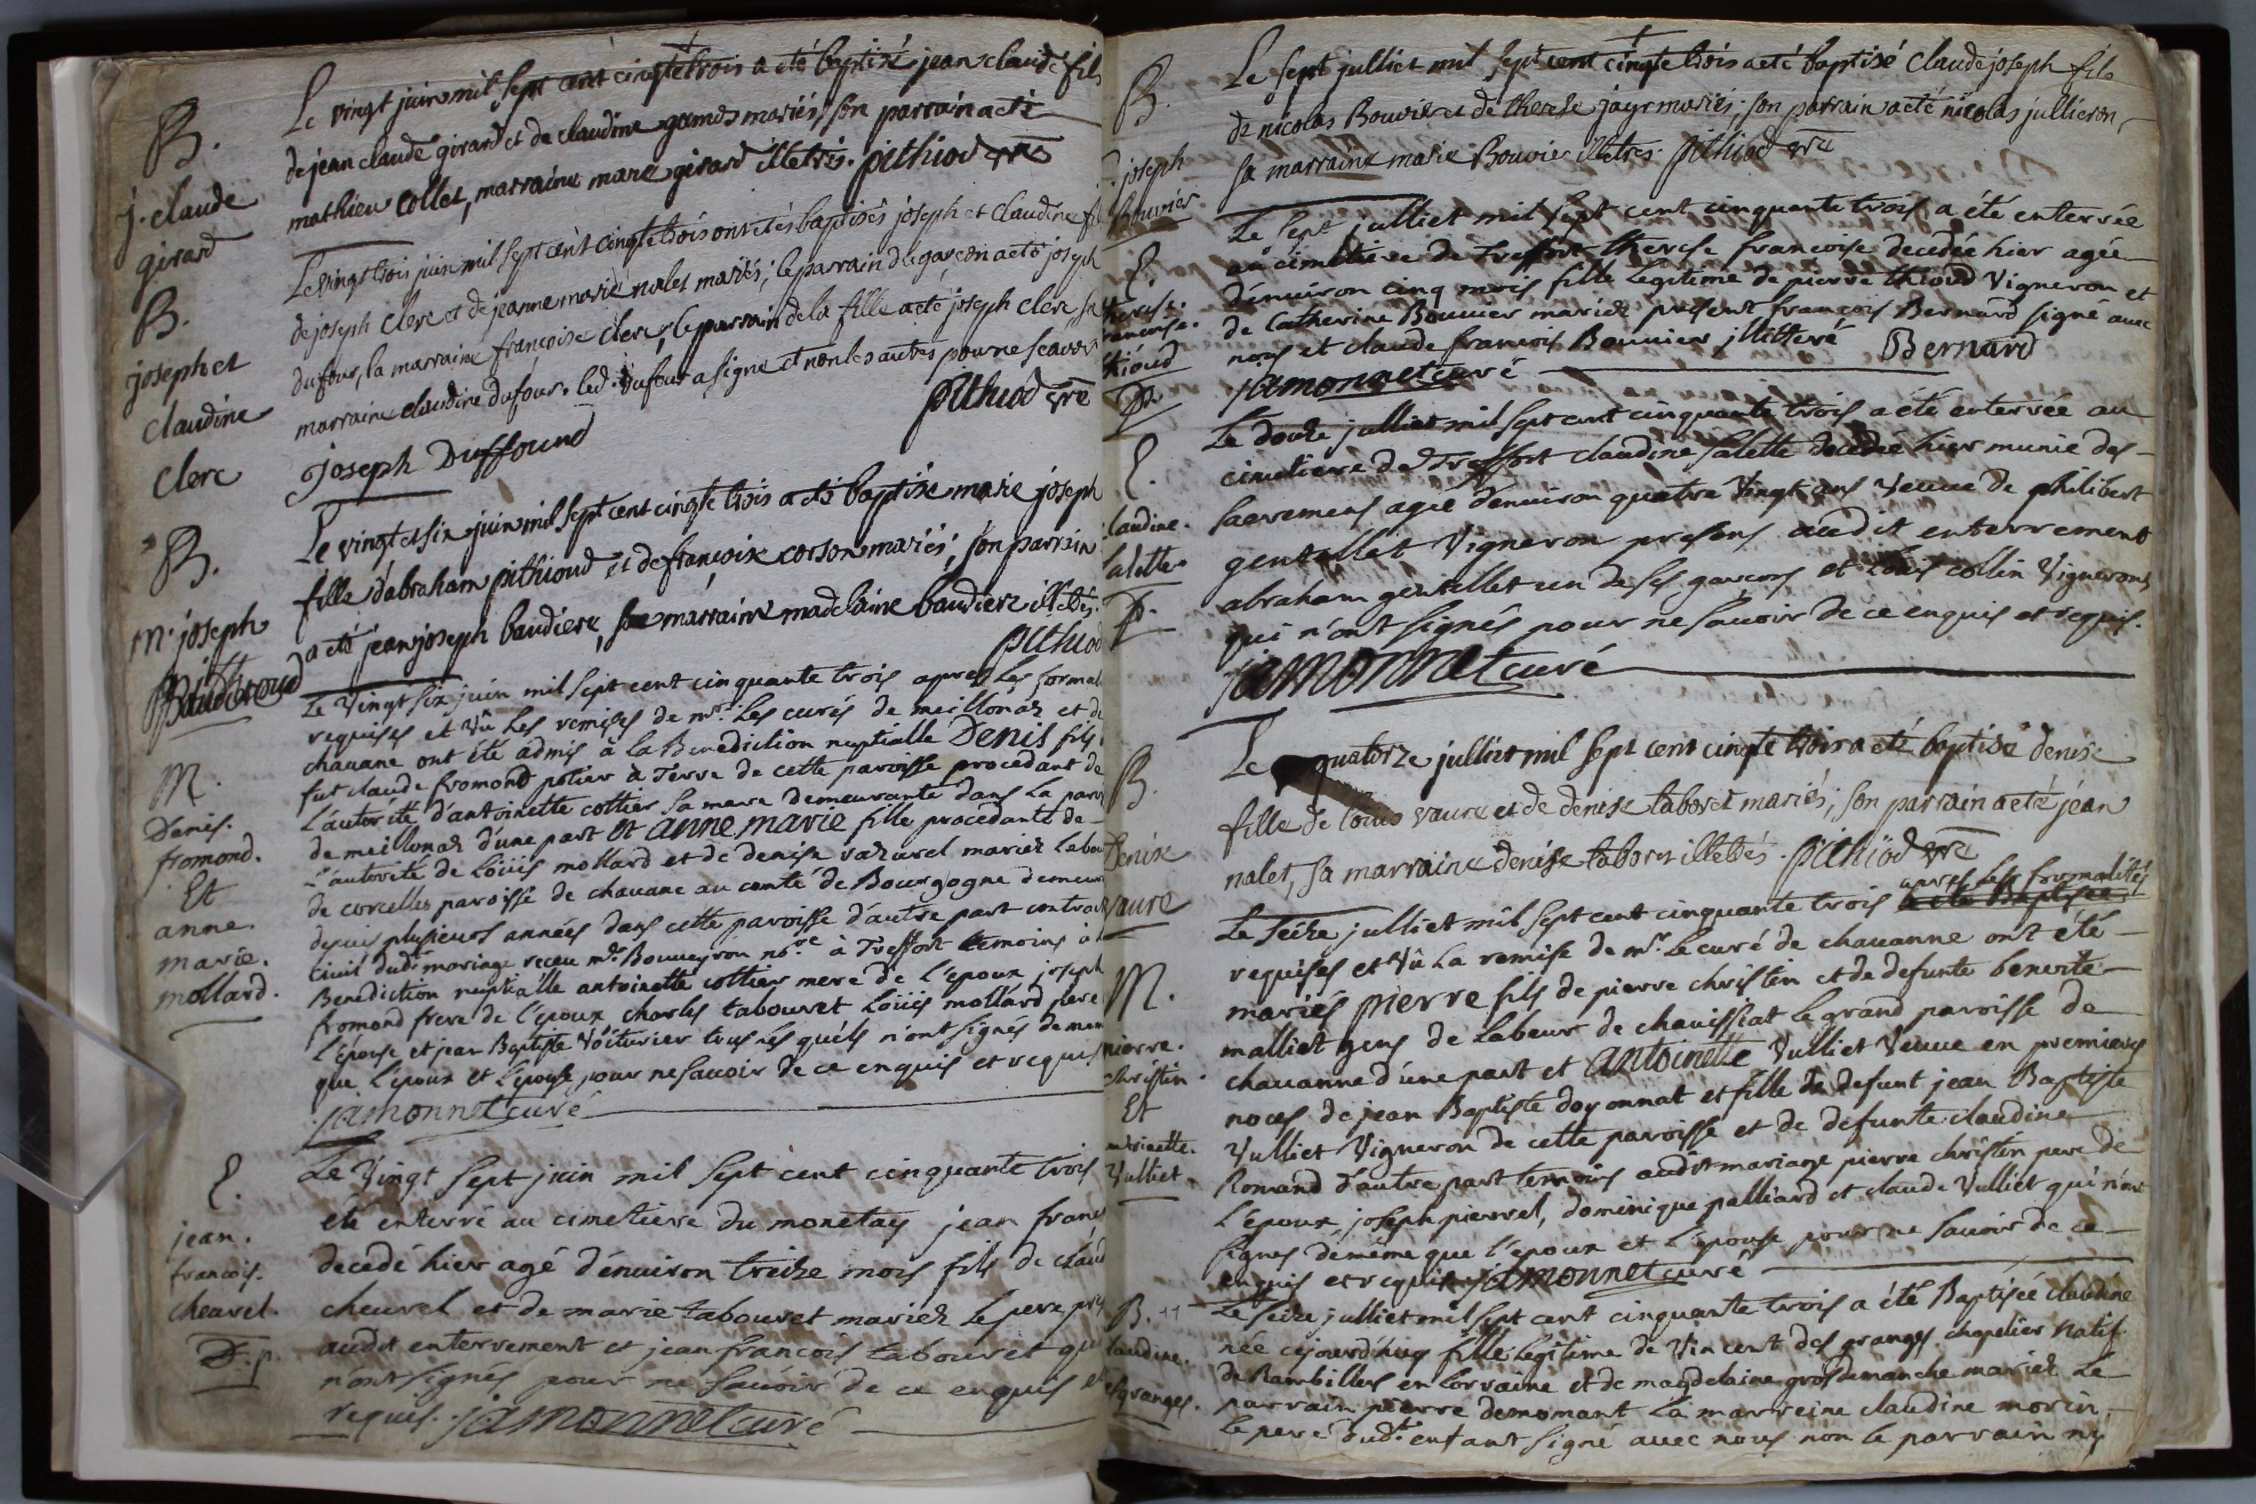 B.
j. claude
girard
Le vingt juin mil sept cent cinqte trois a eté baptisé jean claude fils
de jean claude girard et de claudine gamos mariés, son parrain a eté
mathieu collet, marraine marie girard illetrés. pithiod vre
B.
joseph et
claudine
clerc
Le vingt trois juin mil sept cent cinqte trois ont etés baptisés joseph et claudine
de joseph clerc et de jeanne marie nalet mariés; le parrain du garçon a eté joseph
dufour, la marraine françoise clerc, le parrain de la fille a eté joseph clerc sa
marraine claudine dufour. led. dufour a signé et non les autres pour ne scavoir
pithiod vre
joseph Duffound
B.
m. joseph
pithioud
Le vingt et six juin mil sept cent cinqte trois a eté baptisé marie joseph
fille d'abraham pithioud et de françoise corson mariés, son parrain
a eté jean joseph baudiere, sa marraine madelaine baudiere illetrés.
pithiod
M.
Denis.
fromond.
Et
anne.
marie.
mollard.
Le Vingt six juin mil sept cent cinquante trois apres les formal
requises et vû les remises de mrs. les curés de meillonaz et de
chavane ont été admis à la Benediction nuptialle Denis fils
fut claude fromond potier à Terre de cette paroisse procedant de
l'autorité d'antoinette cottier sa mere demeurante dans la paroi
de meillonaz d'une part et anne marie fille procedante de
l'autorité de Loüis mollard et de denise vazurel mariez labou
de corcelles paroisse de chavane au comté de Bourgogne demeur
depuis plusieurs années dans cette paroisse d'autre part contract
civil dudt. mariage receu me. Bouveyron nore. à Treffort temoins à l
Benediction nuptialle antoinette cottier mere de l'epoux joseph
fromond frere de l'epoux charles tabouret Loüis mollard pere
l'epouse et jean Baptiste Voiturier tous les quels n'ont signés de mem
que l'epoux et l'epouse pour ne savoir de ce enquis et requis
jamonnet curé
E.
jean.
francois.
cheurel.
D.p.
Le Vingt sept juin mil sept cent cinquante trois
été enterré au cimetiere du monetay jean franç
decedé hier agé d'environ treize mois fils de claud
cheurel et de marie tabouret mariez le pere pres
audit enterrement et jean francois tabouret qui
n'ont signés pour ne savoir de ce enquis et
requis. jamonnet curé
B.
joseph
Bouvier
Le sept julliet mil sept cent cinqte trois a eté baptisé claude joseph fils
de nicolas Bouvier et de therese jayr mariés; son parrain a eté nicolas jullieron,
sa marraine marie Bouvier illetrés. pithiod vre
E.
therese.
francoise.
thioud
Le sept julliet mil sept cent cinquante trois a été enterrée
au cimetiere de Treffort therese francoise decedée hier agée
d'environ cinq mois fille legitime de pierre thioud Vigneron et
de Catherine Bouvier mariez present francois Bernard signé avec
nous et claude francois Bouvier illitteré Bernard
jamonnet curé
E.
claudine.
salette.
Le douze julliet mil sept cent cinquante trois a été enterrée au
cimetiere de Treffort claudine salette decedée hier munie des
sacremens agée d'environ quatre Vingt ans veuve de philibert
gentillet Vigneron presens audit enterrement
abraham gentellet un de ses garçons et Loüis collin Vignerons
qui n'ont signés pour ne savoir de ce enquis et requis.
jamonnet curé
B.
Denise
vaure
Le quatorze julliet mil sept cent cinqte trois a eté baptisé denise
fille de loüis vaure et de denise taboret mariés; son parrain a eté jean
nalet, sa marraine denise taboret illettrés. pithiod vre
M.
pierre.
christin.
Et
antoinette.
Vulliet.
Le seize julliet mil sept cent cinquante trois apres les formalités
requises et vû la remise de mr. le curé de chavanne ont été
mariés pierre fils de pierre christin et de defunte benoite
malliet gens de labeur de chavissiat le grand paroisse de
chavanne d'une part et antoinette Vulliet Veuve en premieres
noces de jean Baptiste doyonnat et fille de defunt jean Baptiste
Vulliet Vigneron de cette paroisse et de defunte claudine
Romand d'autre part temoins audit mariage pierre christin pere de
l'epoux joseph pierrel, dominique palliard et claude Vulliet qui n'ont
signés de même que l'epoux et l'epouse pour ne savoir de ce
enquis et requis jamonnet curé
B.
claudine.
desgranges.
Le seize julliet mil sept cent cinquante trois a été Baptisée claudine
née cejourd'huy fille legitime de Vincent des granges chapelier natif
de Rambillers en Lorraine et de magdelaine grosdemanche mariez le
parrain pierre demomant la marreine claudine morin,
le pere dudt. enfant signé avec nous non le parrain ny